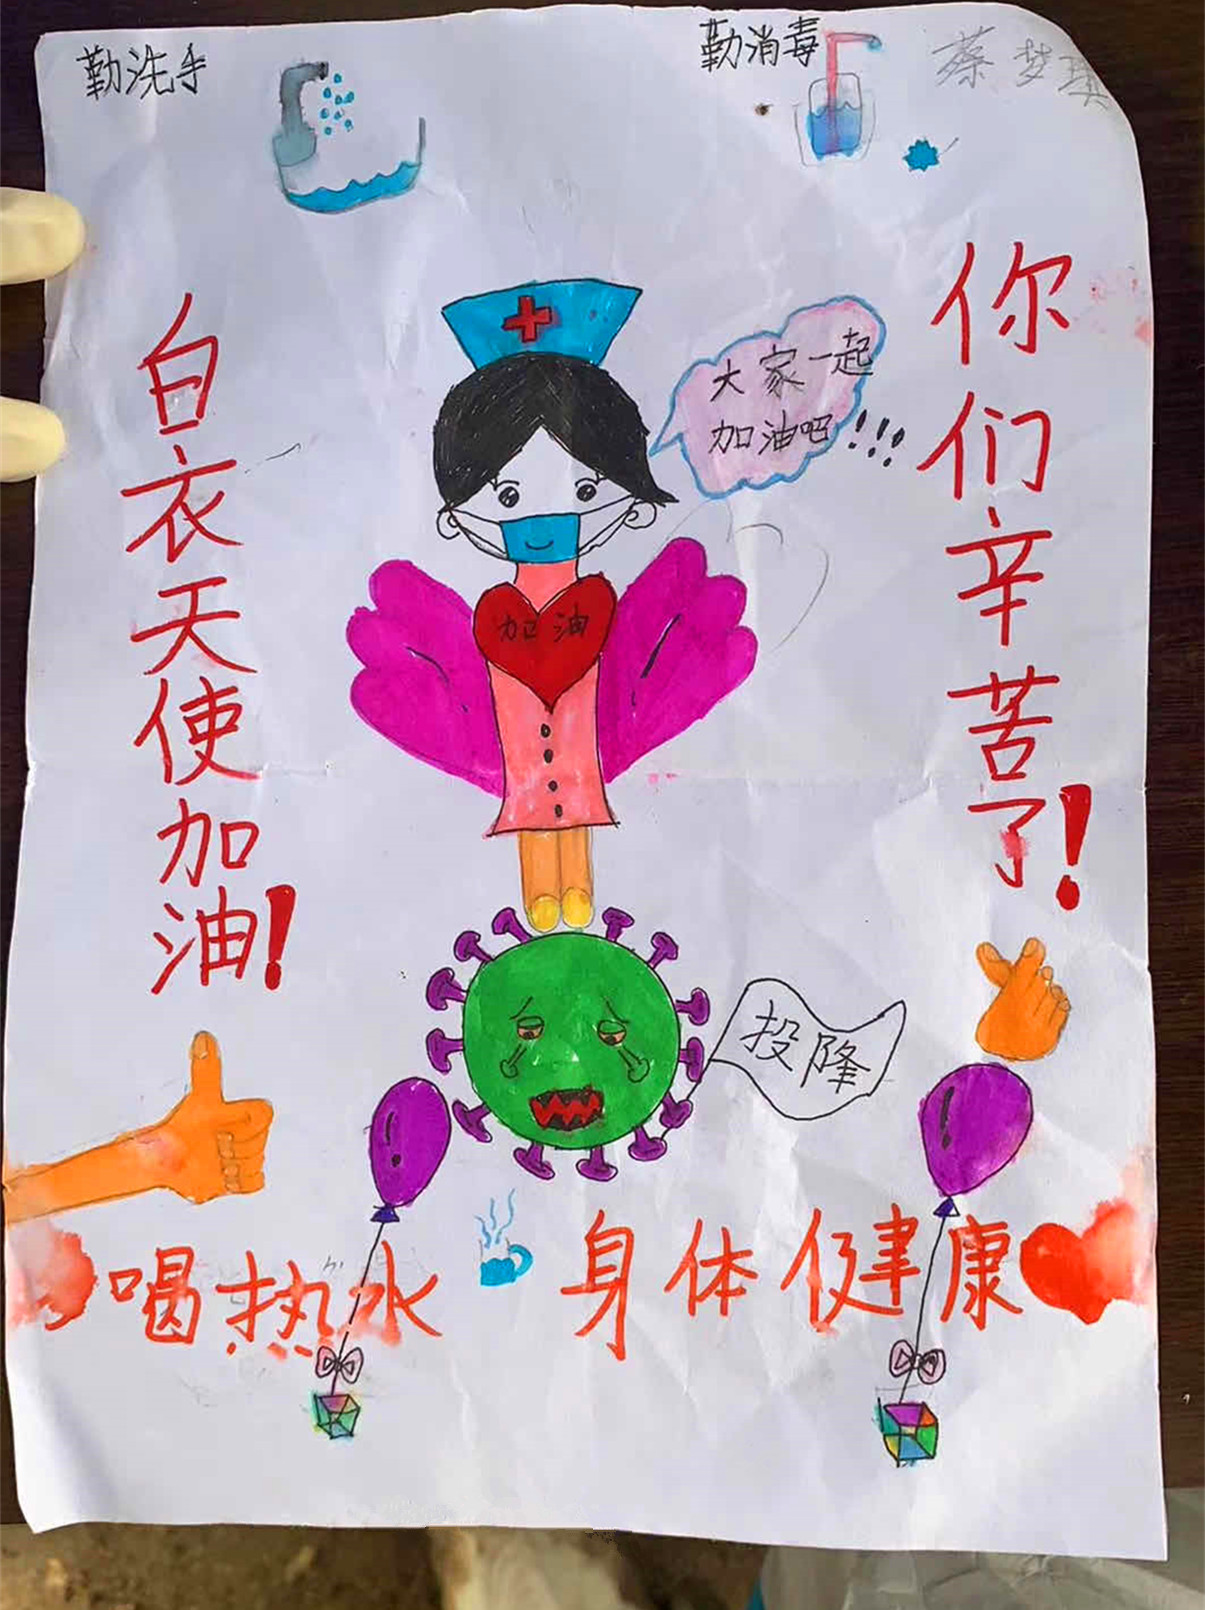 勤洗手
勤消毒
蔡梦琪
白衣天使加油!
大家一起
加油吧!!!
你们辛苦了!
加油
投隆
喝热水 身体健康